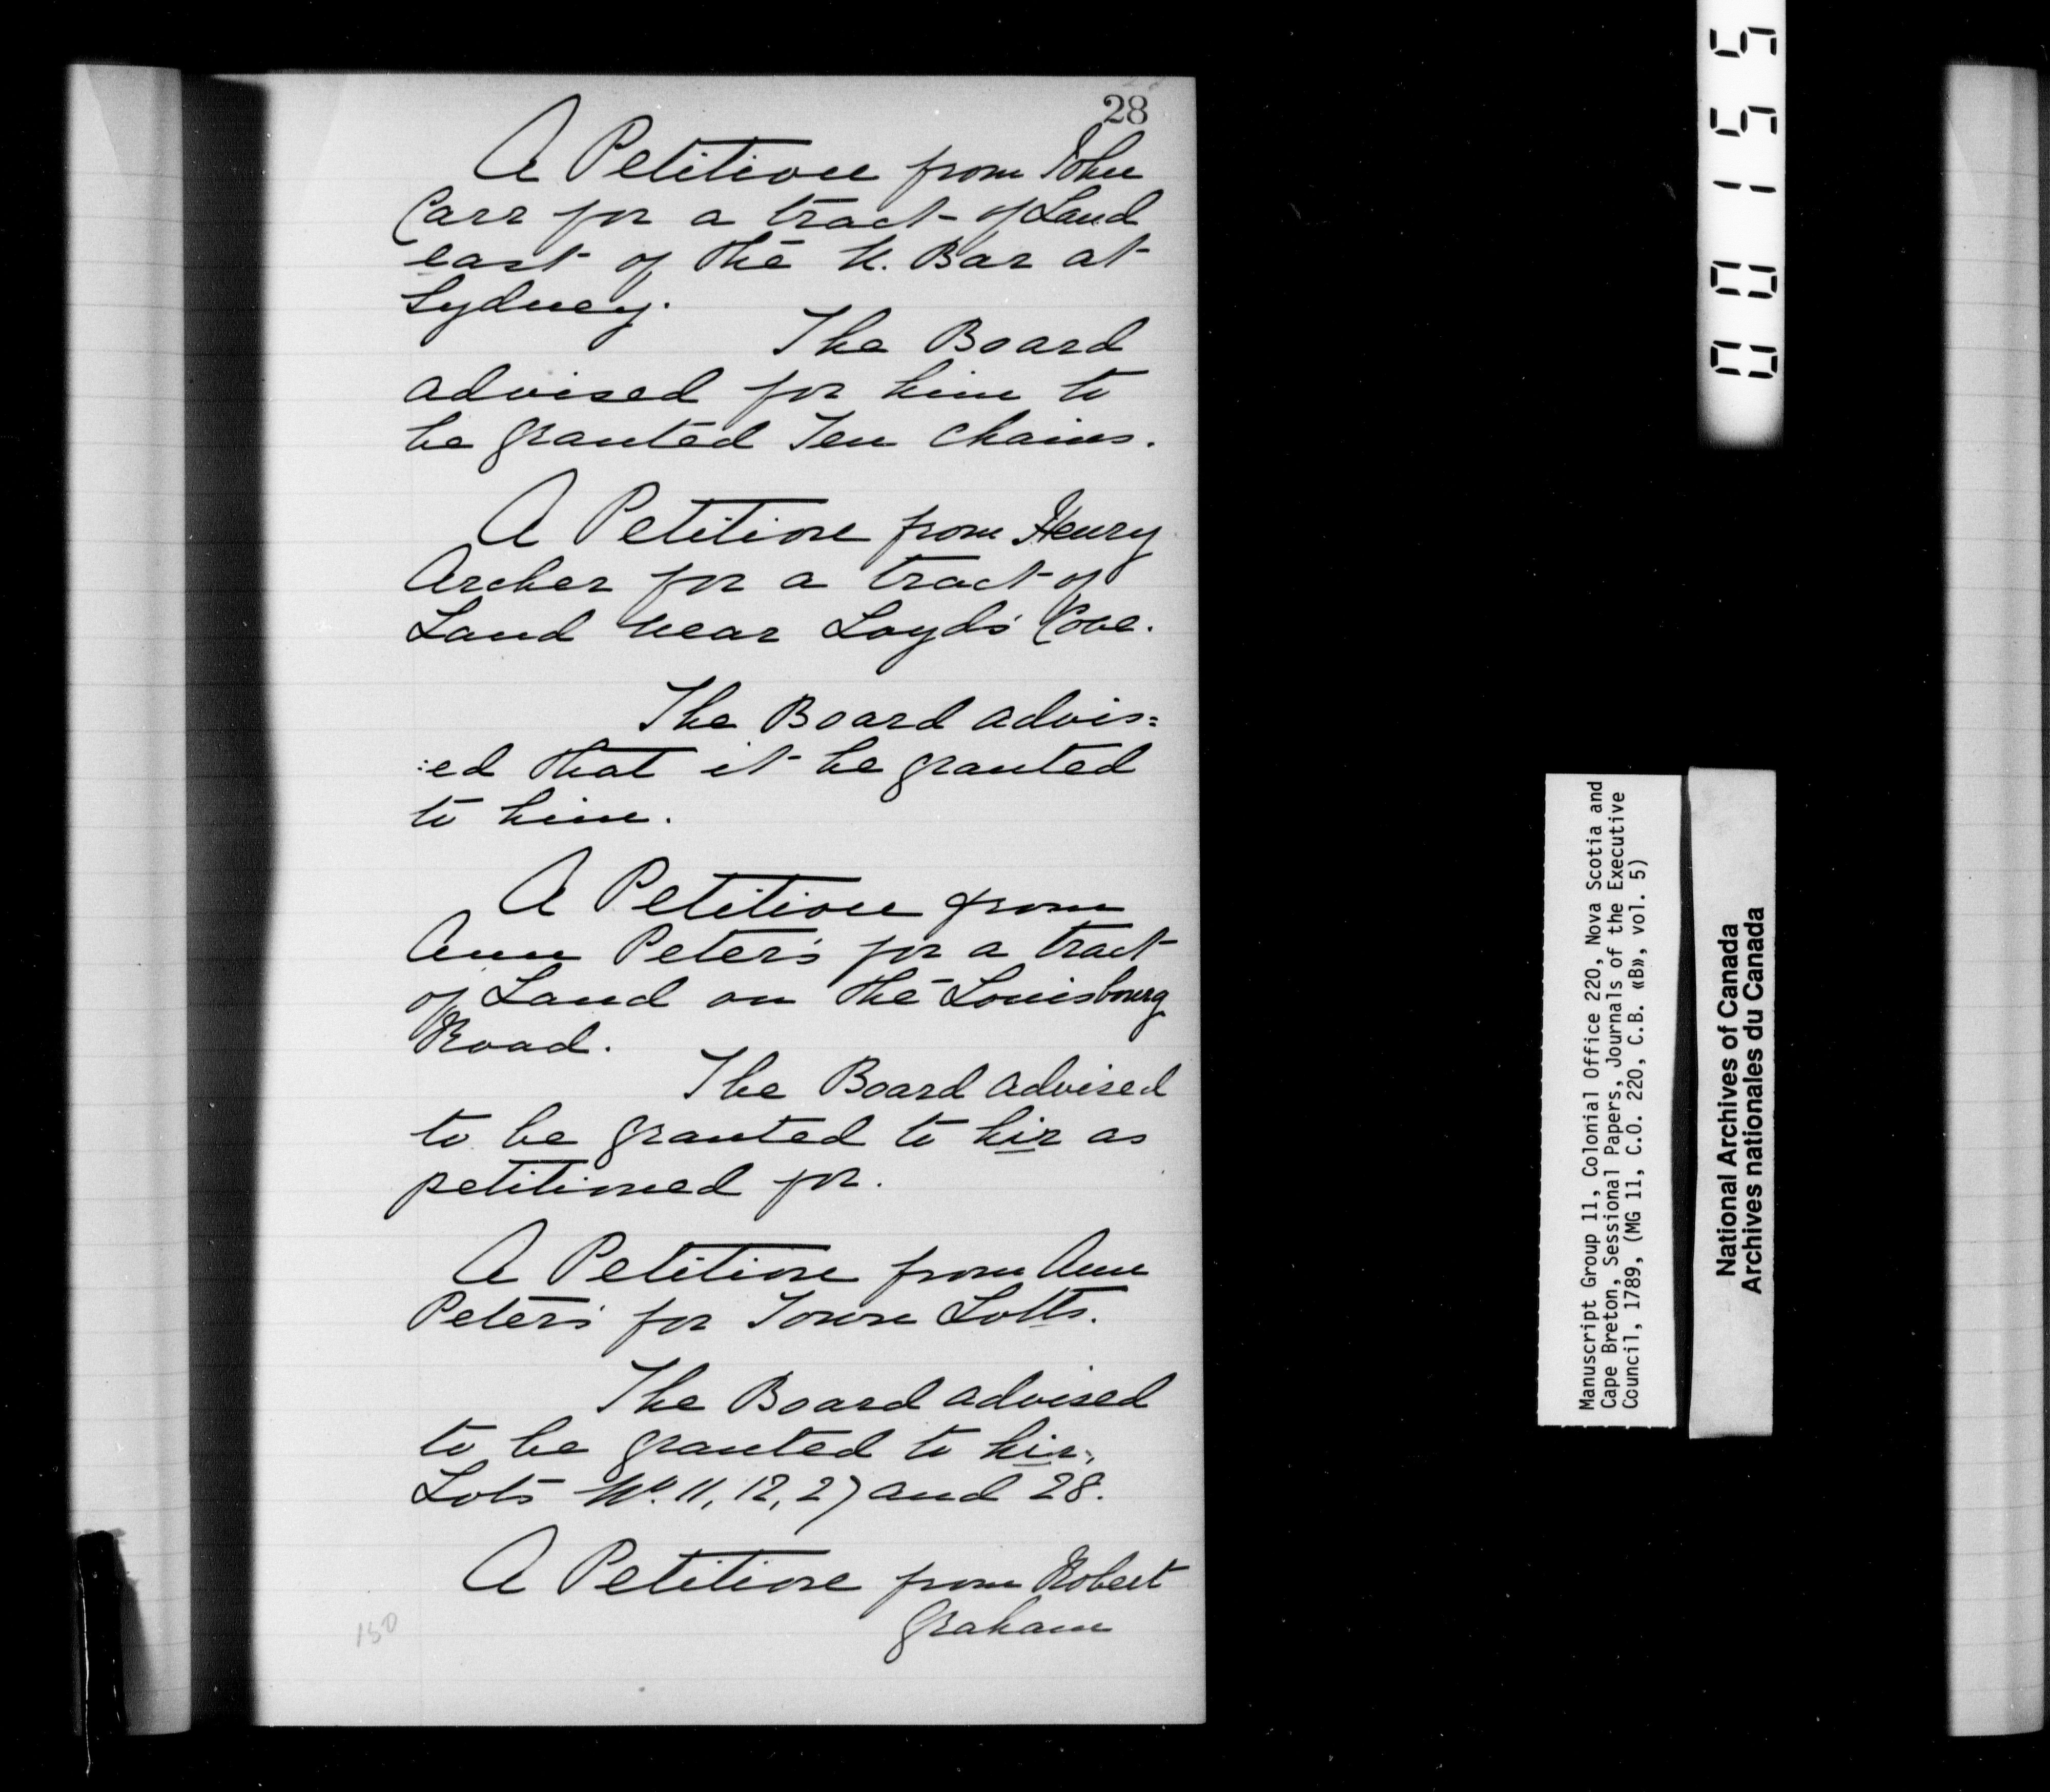 28
A Petition from John
Carr for a tract of Land
east of the N. Bar at
Sydney.
The Board
advised for him to
be granted Ten Chains.
A Petition from Henry
Archer for a tract of
Land near Loyds' Cove.
The Board advis=
:ed that it be granted
to him.
A Petition from
Ann Peter's for a tract
of Land on the Louisbourg
Road.
The Board advised
to be granted to hir as
petitioned for.
A Petition from Ann
Peter's for Town Lotts.
The Board advised
to be granted to hir,
Lots No. 11, 12, 27 and 28.
A Petition from Robert
Graham
150
00155
Manuscript Group 11, Colonial Office 220, Nova Scotia and
Cape Breton, Sessional Papers, Journals of the Executive
Council, 1789, (MG 11, C.O. 220, C.B. «B», vol. 5)
National Archives of Canada
Archives nationales du Canada